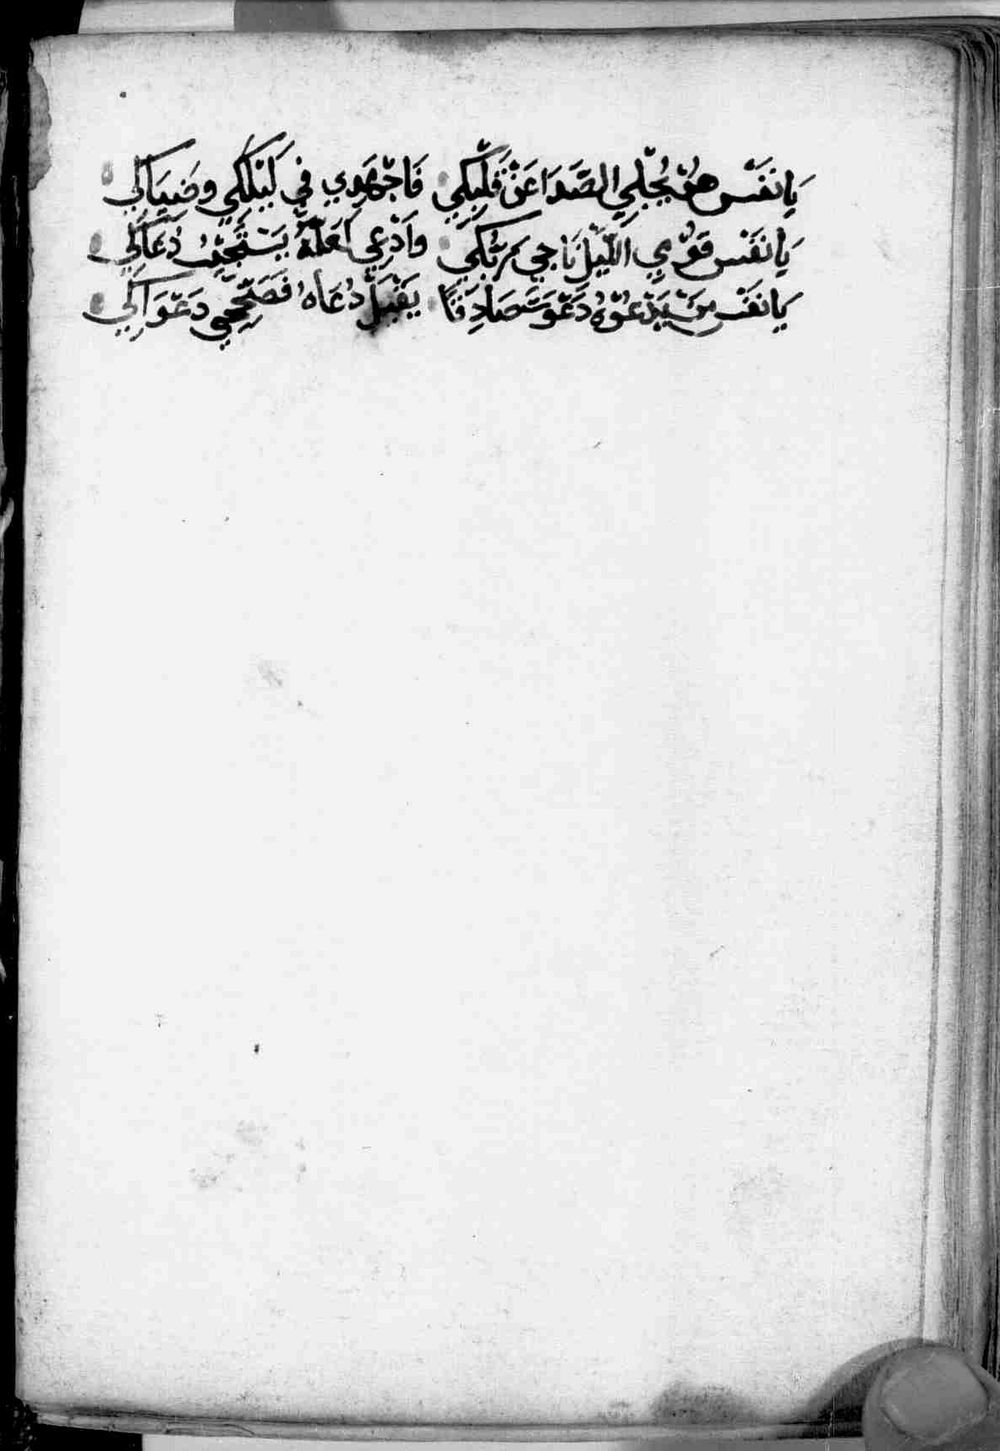 يَا نَفْسُ هُوْ يُجْلِي الصَّدَا عَنْ قَلْبِكِي فَاجْهَدِي فِي لَيْلَكِي وضِيَاكِي
يَا نَفْسُ قُوْمِي اللَّيْلَ نَاجِي رَبَّكِي وادْعِي لَعَلَّهُ يَسْتَجِيْبُ دُعَاكِي
يَا نَفْسُ مَنْ يَدْعُوْهُ دَعْوَتَ صَادِقًا يَقْبَلْ دُعَاهُ فَصَحِّحِي دَعْوَاكِي